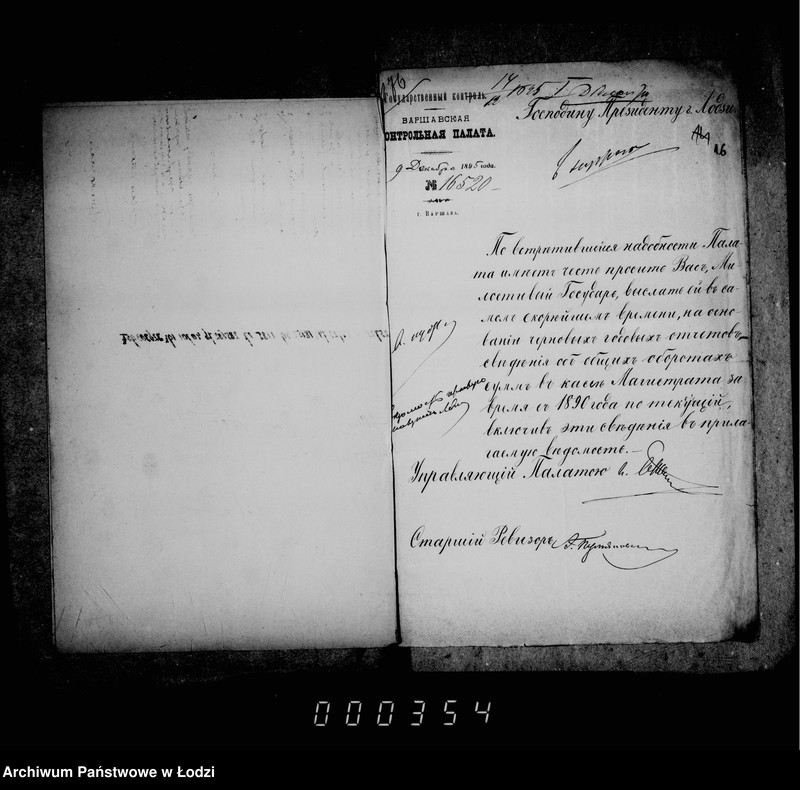 176
Государственный контроль.
ВАРШАВСКАЯ
КОНТРОЛЬНАЯ ПАЛАТА.
9 Декабря 1895 года.
№ 16520
г. ВАРШАВА.
Господину Президенту г. Лодзи
16
По встрѣтившейся надобности Пала-
та имѣетъ честь просить Васъ, Ми-
лостивый Государь, выслать ей въ са-
момъ скорѣйшемъ времени, на осно-
ваніи черновыхъ годовыхъ отчетовъ,
свѣдѣнія объ общихъ оборотахъ
суммъ въ кассѣ Магистрата за
время съ 1890 года по текущій,
включивъ эти свѣдѣнія въ прила-
гаемую вѣдомость.—
Управляющій Палатою
Старшій Ревизоръ
000354
Archiwum Państwowe w Łodzi